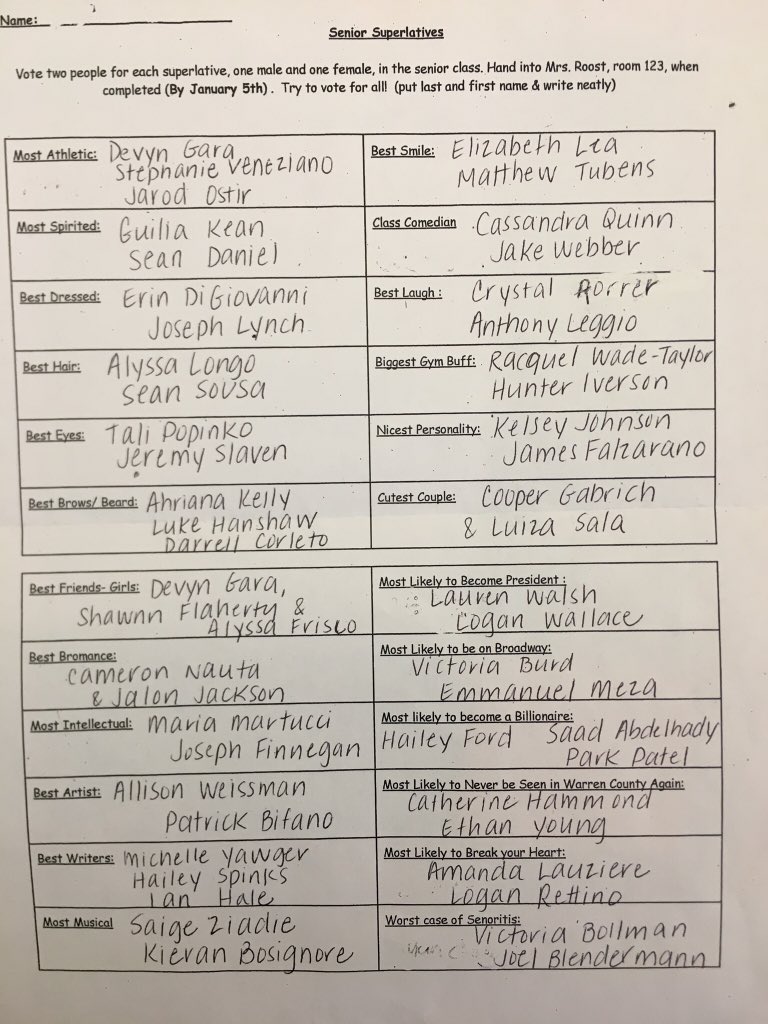 Name:
Senior Superlatives
Vote two people for each superlative, one male and one female, in the senior class. Hand into Mrs. Roost, room 123, when
completed (By January 5th). Try to vote for all! (put last and first name & write neatly)
Most Athletic: Devyn Gara
Stephanie Veneziano
Jarod Ostir
Best Smile: Elizabeth Lea
Matthew Tubens
Most Spirited: Guilia Kean
Sean Daniel
Class Comedian Cassandra Quinn
Jake Webber
Best Dressed: Erin DiGiovanni
Joseph Lynch
Best Laugh: Crystal Rorrer
Anthony Leggio
Best Hair: Alyssa Longo
Sean Sousa
Biggest Gym Buff: Racquel Wade-Taylor
Hunter Iverson
Best Eyes: Tali Popinko
Jeremy Slaven
Nicest Personality: Kelsey Johnson
James Falzarano
Best Brows/ Beard: Ahriana Kelly
Luke Hanshaw
Darrell Corleto
Cutest Couple: Cooper Gabrich
& Luiza Sala
Best Friends- Girls: Devyn Gara,
Shawnn Flaherty &
Alyssa Frisco
Most Likely to Become President :
Lauren Walsh
Logan Wallace
Best Bromance:
Cameron Nauta
& Jalon Jackson
Most Likely to be on Broadway:
Victoria Burd
Emmanuel Meza
Most Intellectual: Maria Martucci
Joseph Finnegan
Most likely to become a Billionaire:
Hailey Ford Saad Abdelhady
Park Patel
Best Artist: Allison Weissman
Patrick Bifano
Most Likely to Never be Seen in Warren County Again:
Catherine Hammond
Ethan Young
Best Writers: Michelle Yawger
Hailey Spinks
Ian Hale
Most Likely to Break your Heart:
Amanda Lauziere
Logan Rettino
Most Musical Saige Ziadie
Kieran Bosignore
Worst case of Senoritis:
Victoria Bollman
Joel Blendermann